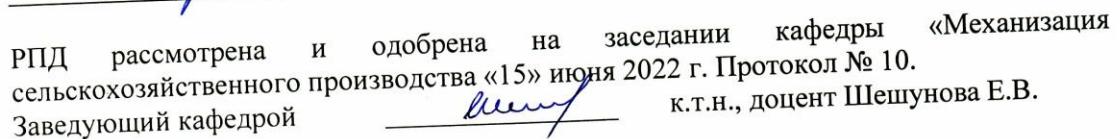 РПД рассмотрена и одобрена на заседании кафедры «Механизация
сельскохозяйственного производства «15» июня 2022 г. Протокол № 10.
Заведующий кафедрой к.т.н., доцент Шешунова Е.В.